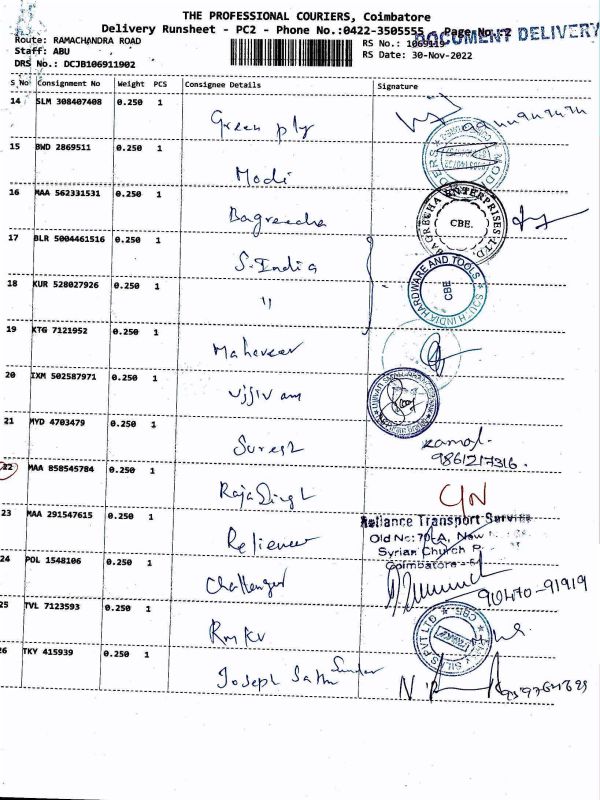 THE PROFESSIONAL COURIERS, Coimbatore
Delivery Runsheet - PC2 - Phone No.:0422-3505555 Page No.:2
DOCUMENT DELIVERY
Route: RAMACHANDRA ROAD RS No.: 1069119
Staff: ABU RS Date: 30-Nov-2022
DRS No.: DCJB106911902
S No Consignment No Weight PCS Consignee Details Signature
14 SLM 308407408 0.250 1 Green ply
15 BWD 2869511 0.250 1 Modi
16 MAA 562331531 0.250 1 Bagreecha
BAGRECHA ENTERPRISES LTD. CBE.
17 BLR 5004461516 0.250 1 S. India
SOUTH INDIA HARDWARE AND TOOLS CBE
18 KUR 528027926 0.250 1 "
19 KTG 7121952 0.250 1 Maheveer
20 IXM 502587971 0.250 1 Ujjivam
21 MYD 4703479 0.250 1 Suresh
9861217316.
22 MAA 858545784 0.250 1 Raja Singh C/N
23 MAA 291547615 0.250 1 Relience
Reliance Transport Service
Old No: 70-A, New
Syrian Church R
Coimbatore
24 POL 1548106 0.250 1 Challenger
90470-91919
25 TVL 7123593 0.250 1 RmKV
26 TKY 415939 0.250 1 Joseph Sathu Sundar